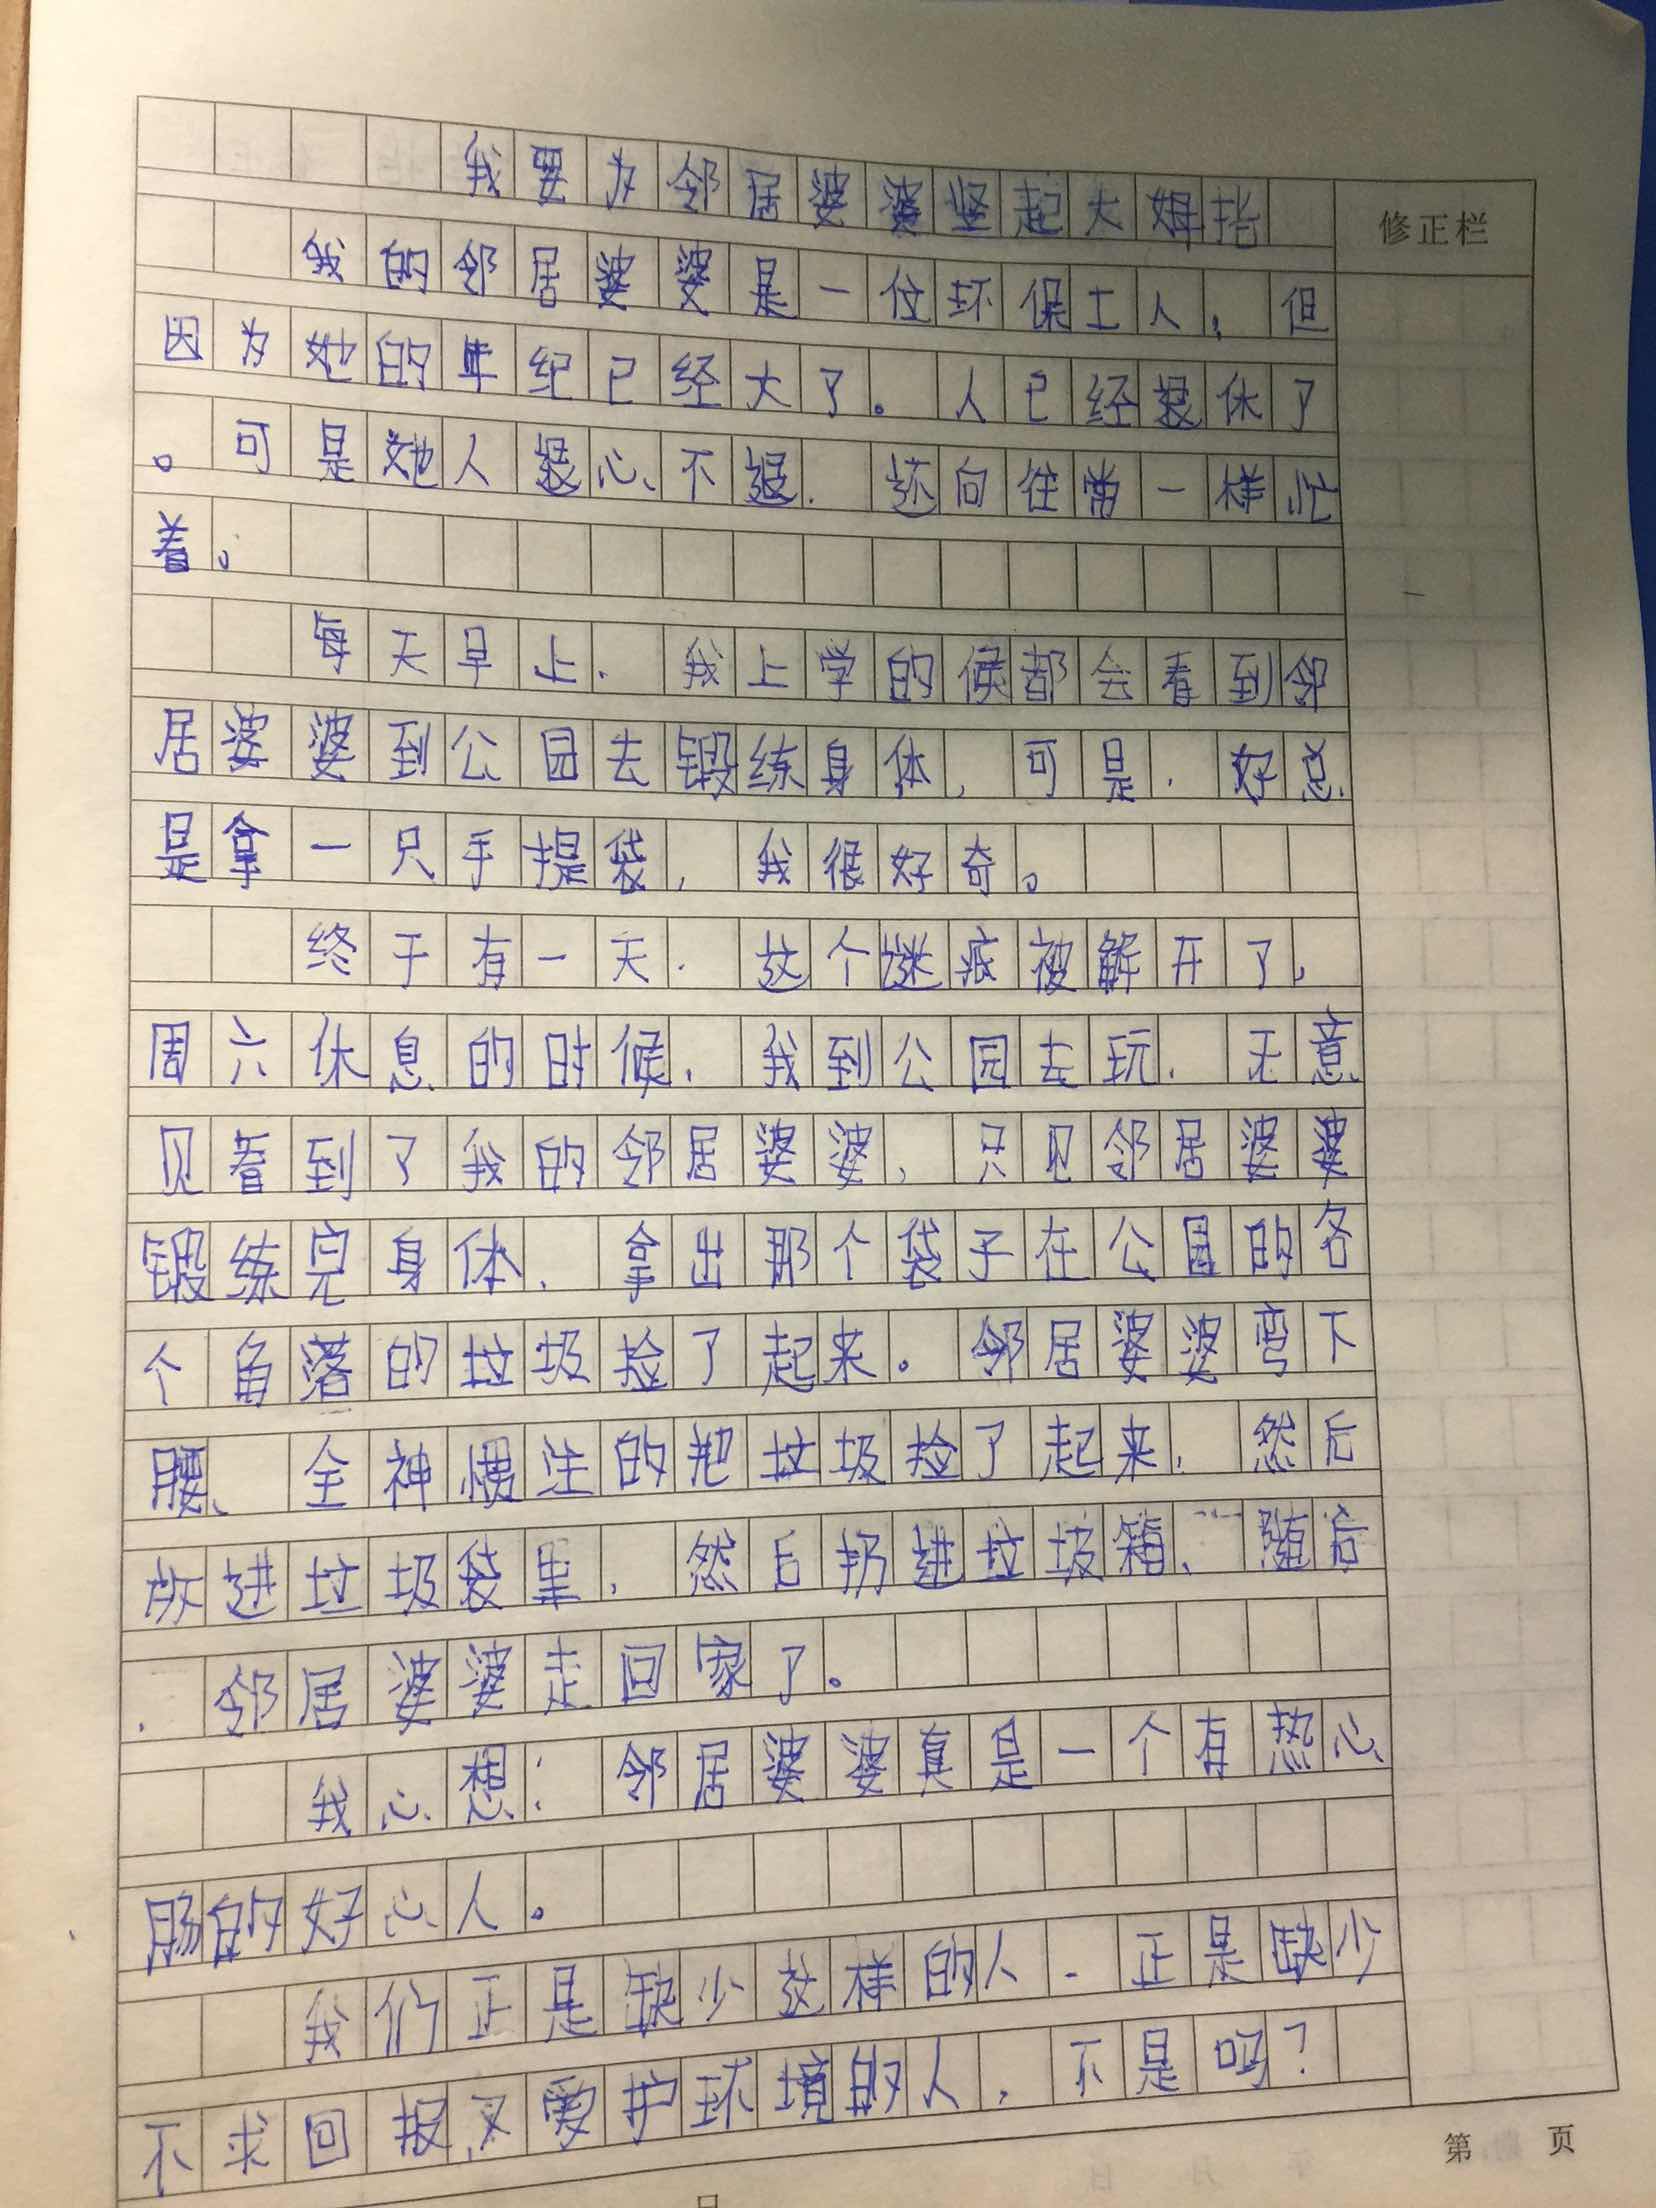 我要为邻居婆婆坚起大姆指
修正栏
我的邻居婆婆是一位环保工人，但
因为她的年纪已经大了。人已经退休了
。可是她人退心不退，还向往常一样忙
着。
每天早上，我上学的候都会看到邻
居婆婆到公园去锻练身体，可是，好总
是拿一只手提袋，我很好奇。
终于有一天，这个谜底被解开了。
周六休息的时候，我到公园去玩，无意
见看到了我的邻居婆婆，只见邻居婆婆
锻练完身体，拿出那个袋子在公园的各
个角落的垃圾捡了起来。邻居婆婆弯下
腰、全神惯注的把垃圾捡了起来，然后
放进垃圾袋里，然后扔进垃圾箱、随后
，邻居婆婆走回家了。
我心想：邻居婆婆真是一个有热心
肠的好心人。
我们正是缺少这样的人，正是缺少
不求回报又爱护环境的人，不是吗？
第 页